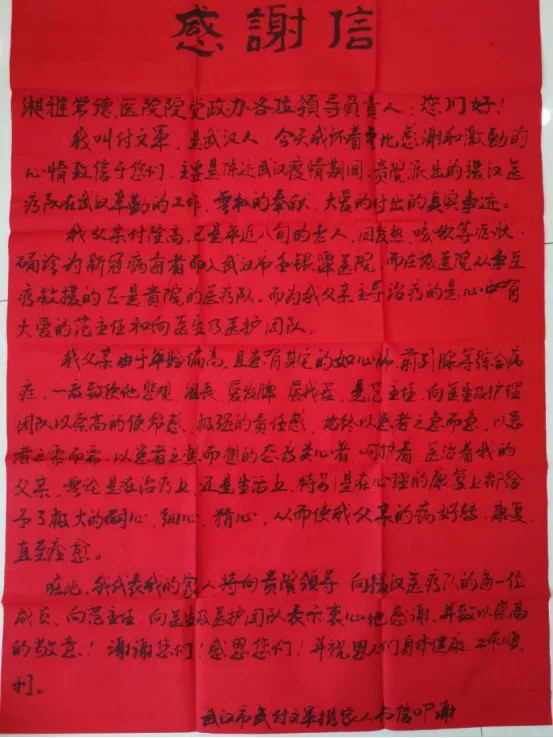 感謝信
湘雅常德医院院党政办各位领导负责人：您们好！
我叫付文軍，是武汉人，今天我怀着无比感谢和激動的
心情致信于您们，主要是陈述武汉疫情期间，贵院派出的援汉医
疗队在武汉辛勤的工作，無私的奉献，大爱的付出的真实事迹。
我父亲付隆高，已是年近八旬的老人，因发热、咳嗽等症状，
确诊为新冠病毒者而入武汉市金银潭医院，而在该医院从事医
疗救援的正是贵院的医疗队，而为我父亲主导治疗的是心中有
大爱的范主任和向医生及医护团队。
我父亲由于年龄偏高，且患有其它的如心病，前列腺等综合病
症，一度致使他悲观、沮丧、
是范主任、向医生及护理
团队以崇高的使命感，极强的责任感，始终以患者之意而意，以患
者之需而需，以患者之想而想的态度关心着、呵护着、医治着我的
父亲，無论是在治疗上，还是生活上，特别是在心理的康复上都给
予了极大的耐心、细心、精心，从而使我父亲的病好转、康复，
直至痊愈。
在此，我代表我的家人特向贵院领导，向援汉医疗队的每一位
成员，向范主任，向医生及医护团队表示衷心地感谢，并致以崇高
的敬意！谢谢您们！感恩您们！并祝恩人们身体健康，工作顺
利。
武汉市民付文軍携家人书信叩谢